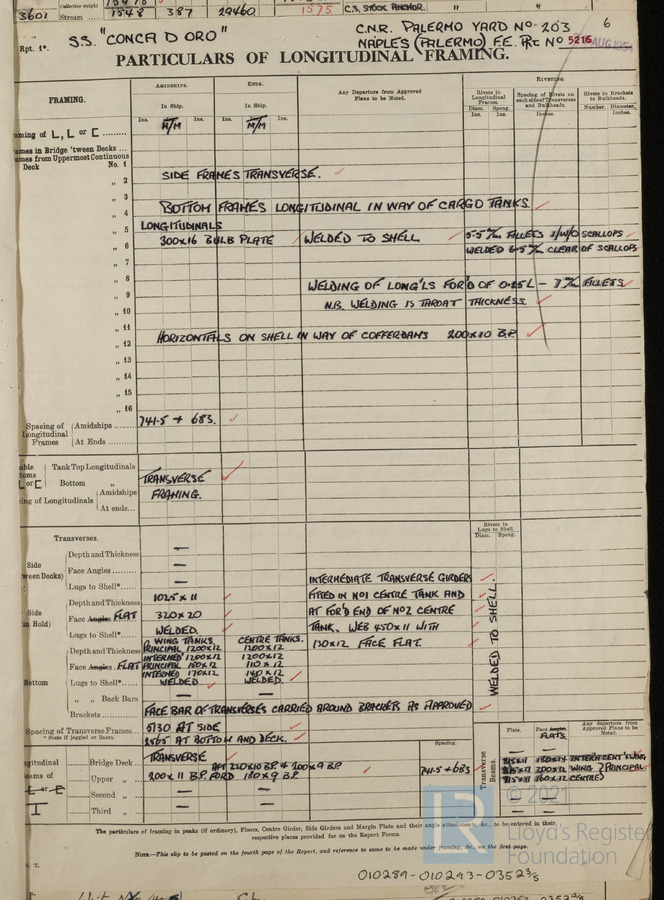 3601
Collective weight
Stream 1548 387 29460 1575 C.S. STOCK ANCHOR. " "
6
Rpt. 1*.
S.S. "CONCA D ORO"
C.N.R. PALERMO YARD No. 203
NAPLES (PALERMO) F.E. Rpt. No 5216
AUG 195
PARTICULARS OF LONGITUDINAL FRAMING.
FRAMING.
AMIDSHIPS. ENDS.
In Ship. In Ship.
Any Departure from Approved Plans to be Noted.
RIVETING.
Rivets in Longitudinal Frames.
Diam. Spcng.
Ins. Ins.
Spacing of Rivets on each side of Transverses and Bulkheads.
Inches.
Rivets in Brackets to Bulkheads.
Number. Diameter, Inches.
Ins. M/M Ins. Ins. M/M Ins.
aming of L, L or [ .........
ames in Bridge 'tween Decks ...
ames from Uppermost Continuous
Deck No. 1
" 2 SIDE FRAMES TRANSVERSE.
" 3
" 4 BOTTOM FRAMES LONGITUDINAL IN WAY OF CARGO TANKS
" 5 LONGITUDINALS
" 6 300X16 BULB PLATE WELDED TO SHELL 5·5 m/m FILLETS I/W/O SCALLOPS
WELDED 6·5 m/m CLEAR OF SCALLOPS
" 7
" 8
" 9 WELDING OF LONG'LS FOR'D OF 0·25L - 7 m/m FILLETS
" 10 N.B. WELDING IS THROAT THICKNESS
" 11
" 12 HORIZONTALS ON SHELL IN WAY OF COFFERDAMS 200X10 B.P.
" 13
" 14
" 15
" 16
Spacing of Longitudinal Frames
Amidships ........ 741·5 + 683.
At Ends ........
Tank Top Longitudinals
Bottom " TRANSVERSE
ing of Longitudinals Amidships FRAMING.
At ends...
Transverses.
Rivets in Lugs to Shell.
Diam. Spcng.
Side
ween Decks)
Depth and Thickness —
Face Angles ......... —
Lugs to Shell*...... — INTERMEDIATE TRANSVERSE GIRDERS
Side
in Hold)
Depth and Thickness 1025 X 11 FITTED IN No1 CENTRE TANK AND
Face Angles FLAT 320 X 20 AT FOR'D END OF No2 CENTRE
Lugs to Shell*...... WELDED. TANK. WEB 450X11 WITH
WING TANKS. CENTRE TANKS. 130X12 FACE FLAT.
Bottom
Depth and Thickness PRINCIPAL 1200X12 1200X12
INTERMED 1200X12 1200X12
Face Angles FLAT PRINCIPAL 180X12 110 X 12
INTERMED 170X12 140 X 12
Lugs to Shell*...... WELDED WELDED.
" " Back Bars — —
Brackets ............ FACE BAR OF TRANSVERSES CARRIED AROUND BRACKETS AS APPROVED
WELDED TO SHELL.
Spacing of Transverse Frames......
* State if joggled or liners.
5130 AT SIDE
2565 AT BOTTOM AND DECK.
Spacing.
Plate. Face Angles FLATS.
Any departure from Approved Plans to be Noted.
Transverse Beams.
gitudinal
eams of
Bridge Deck... TRANSVERSE
Upper " ... AFT 220X10 BP & 200X9 BP
200 X 11 B.P. FOR'D 180X9 B.P. 741·5 + 683
Second " ... — —
Third " ... — —
815X11 180X14 INTER CENT & WING
815X11 200X12 WING } PRINCIPAL
815X11 160X12 CENTRE
The particulars of framing in peaks (if ordinary), Floors, Centre Girder, Side Girders and Margin Plate and their angle attachments, &c., to be entered in their
respective places provided for on the Report Forms.
NOTE.—This slip to be pasted on the fourth page of the Report, and reference to same to be made under framing, &c., on the first page.
© 2021
Lloyd's Register
Foundation
010289-010293-0352 3/5